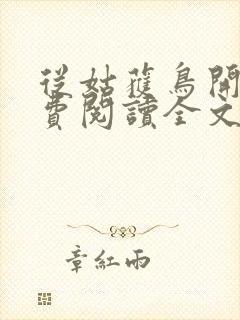 從姑獲鳥開
費閱讀全文
章紅雨